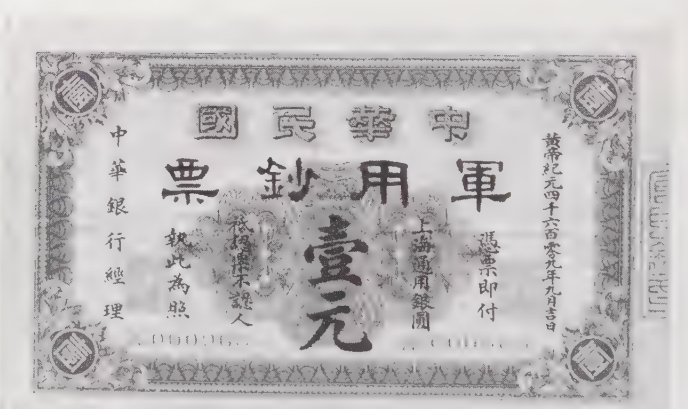 中華民國
軍用鈔票
黃帝紀元四千六百零九年九月吉日
憑票即付
上海通用銀圓
壹元
祇認票不認人
執此為照
中華銀行經理